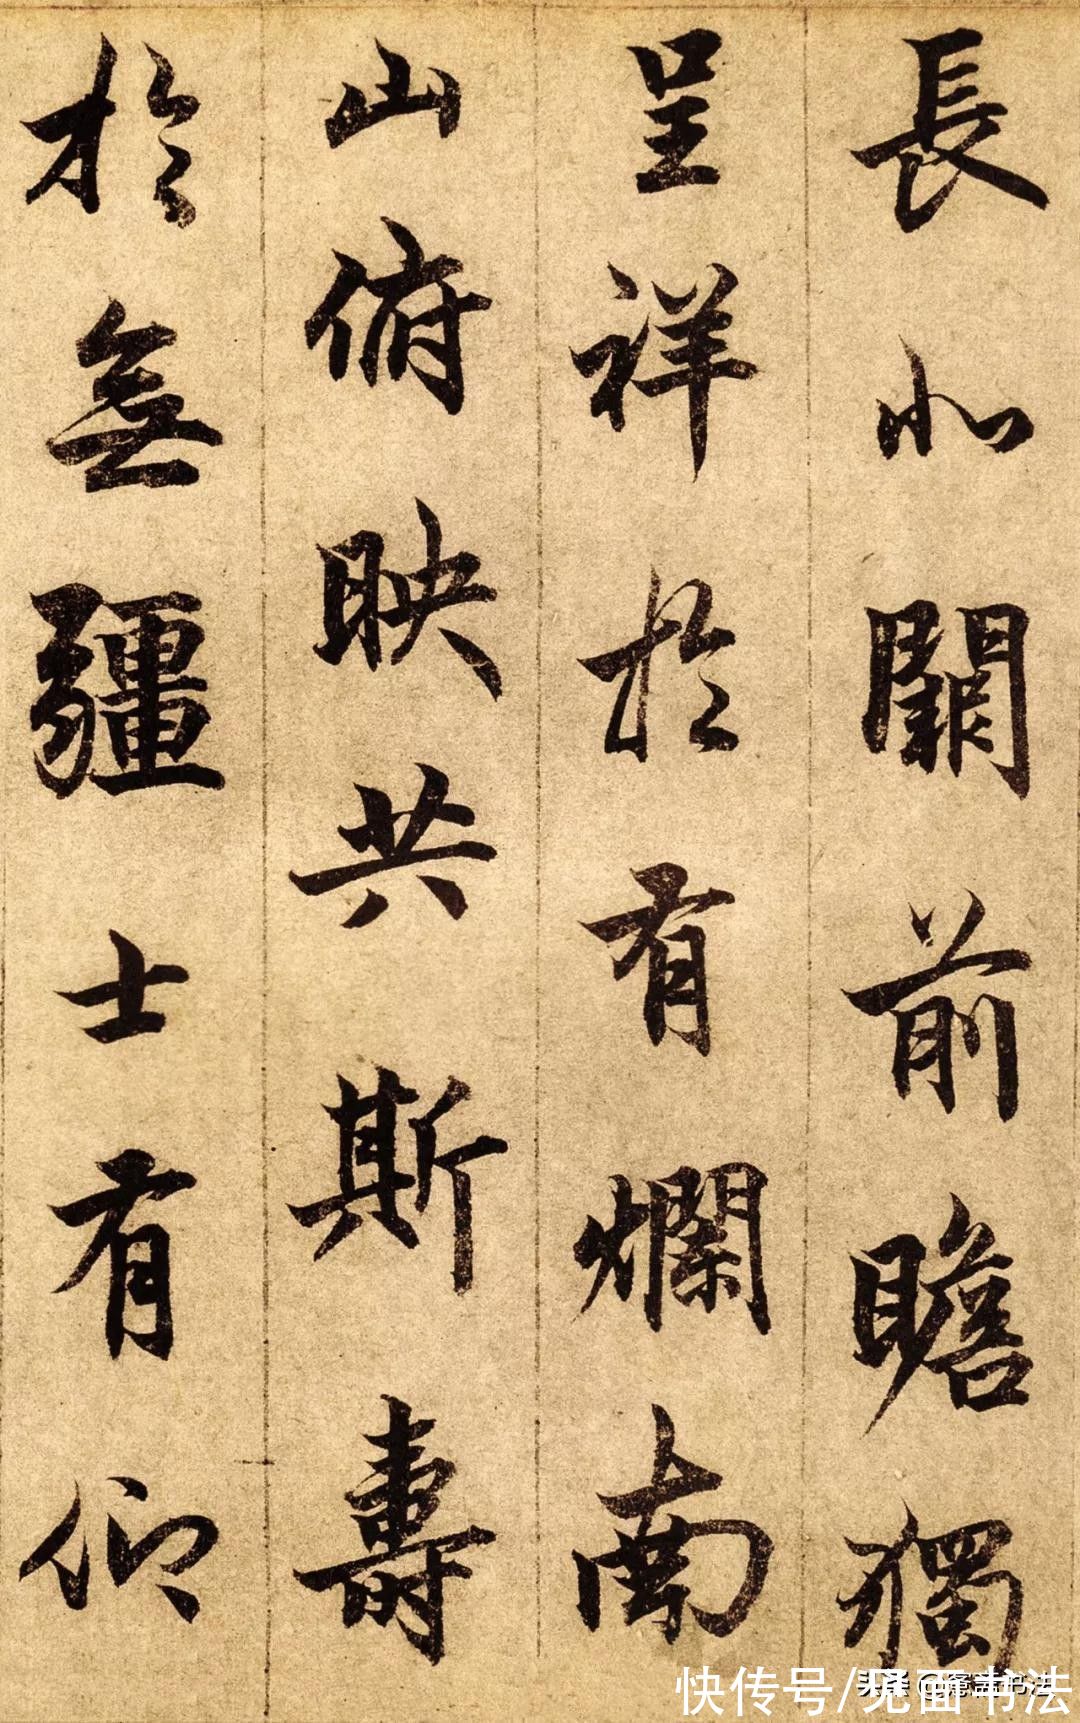 長北闕前瞻獨
呈祥於有爛南
山俯映共斯壽
於無疆士有仰
快传号/见面书法